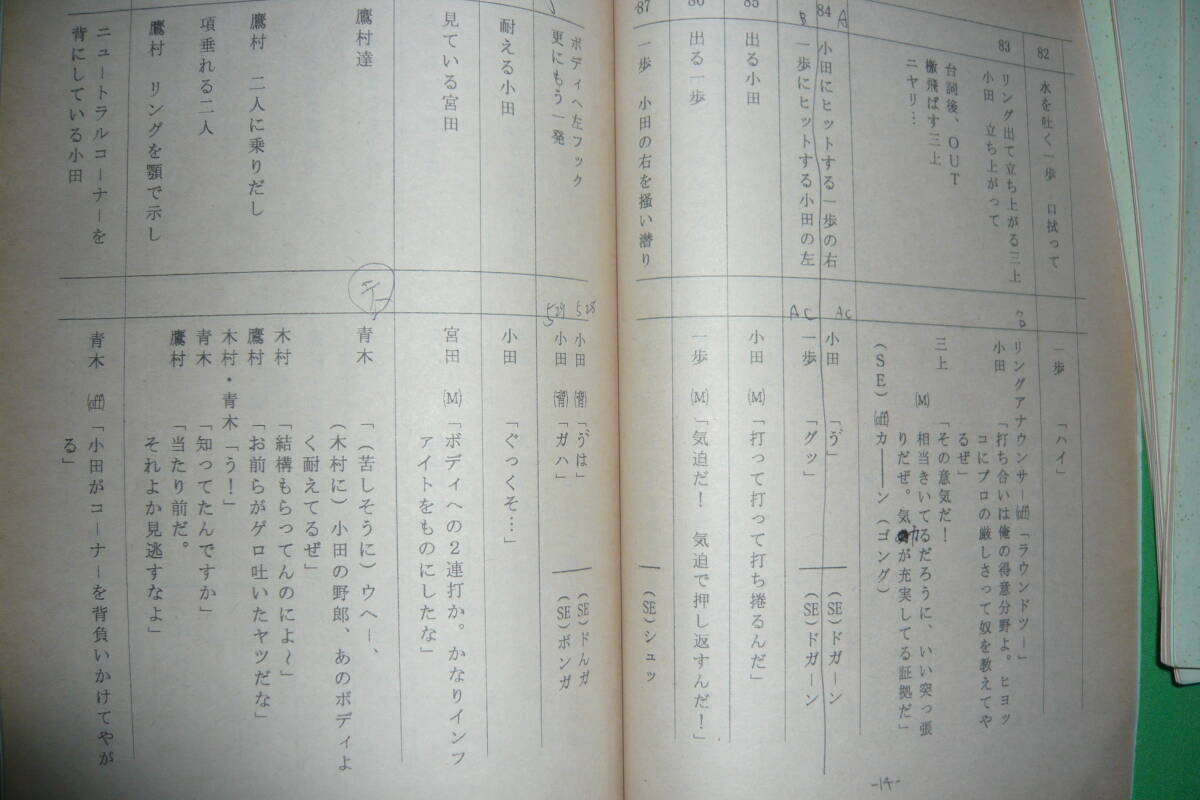 82
水を吐く一歩 口拭って
一歩 「ハイ」
83
リング出て立ち上がる三上
小田 立ち上がって
台詞後、OUT
檄飛ばす三上
ニヤリ…
リングアナウンサー(off)「ラウンドツー」
小田 「打ち合いは俺の得意分野よ。ヒヨッ
コにプロの厳しさって奴を教えてや
るぜ」
三上 「その意気だ!
(M) 相当きいてるだろうに、いい突っ張
りだぜ。気が充実してる証拠だ」
(SE)(off)カ――ン(ゴング)
84 A
小田にヒットする一歩の右
AC
小田 「ゔ」 (SE)ドガーン
B
一歩にヒットする小田の左
AC
一歩 「グッ」 (SE)ドガーン
85
出る小田
小田 (M)「打って打って打ち捲るんだ」
86
出る一歩
一歩 (M)「気迫だ! 気迫で押し返すんだ!」
87
一歩 小田の右を掻い潜り
(SE)シュッ
ボディへ左フック
更にもう一発
528
小田 (背)「ゔは」 (SE)ドんガ
529
小田 (背)「ガハ」 (SE)ボンガ
耐える小田
小田 「ぐっくそ…」
見ている宮田
宮田 (M)「ボディへの2連打か。かなりインフ
ァイトをものにしたな」
鷹村達
青木 「(苦しそうに)ウヘー、
(木村に)小田の野郎、あのボディよ
く耐えてるぜ」
木村 「結構もらってんのによ~」
鷹村 二人に乗りだし
鷹村 「お前らがゲロ吐いたヤツだな」
項垂れる二人
木村・青木「う!」
青木 「知ってたんですか」
鷹村 リングを顎で示し
鷹村 「当たり前だ。
それよか見逃すなよ」
ニュートラルコーナーを
背にしている小田
青木 (off)「小田がコーナーを背負いかけてやが
る」
-14-